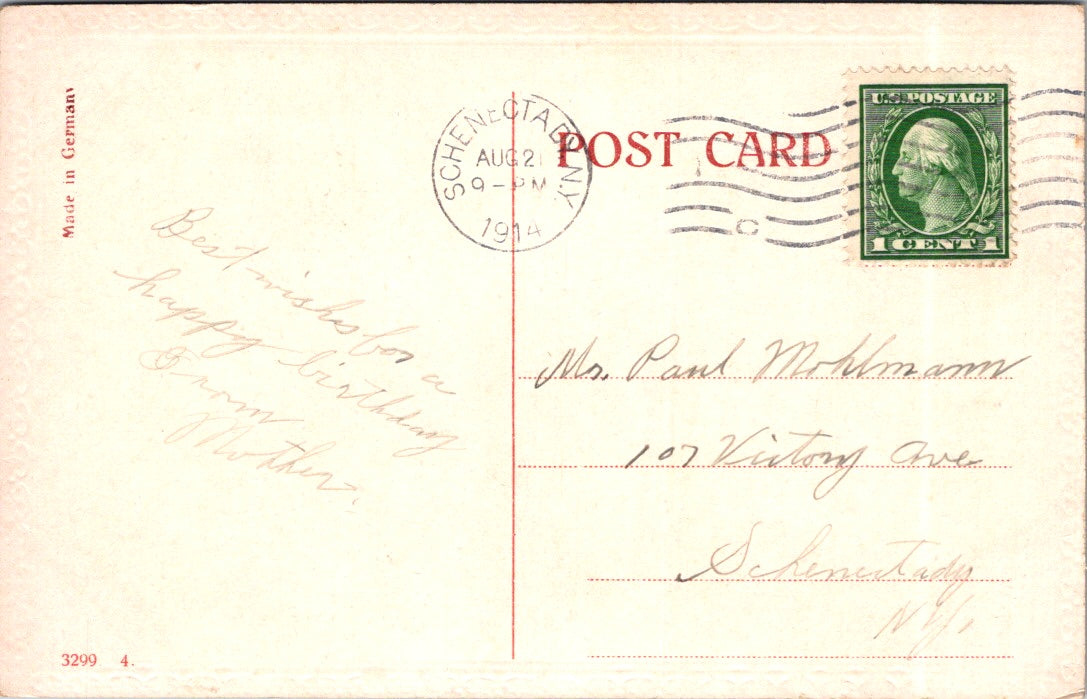 Made in Germany
SCHENECTADY, N.Y.
AUG 21
9 - PM
1914
POST CARD
C
U.S. POSTAGE
1 CENT 1
Best wishes for a
happy birthday
From
Mother.
Mr. Paul Mohlmann
107 Victory Ave
Schenectady
N.Y.
3299 4.